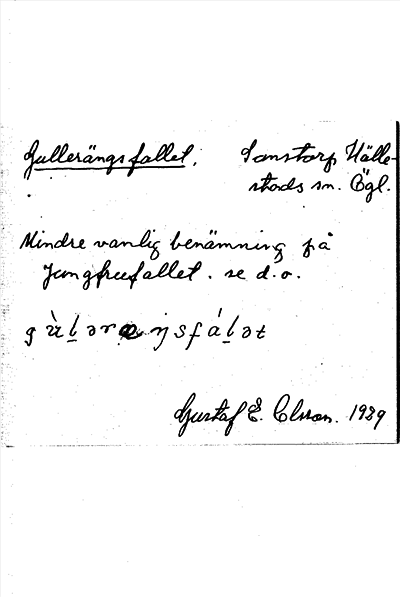 Gullerängsfallet. Sonstorp Hälle-
stads sn. Ögl.
Mindre vanlig benämning på
Jungfrufallet. se d. o.
Gustaf E. Olsson. 1929